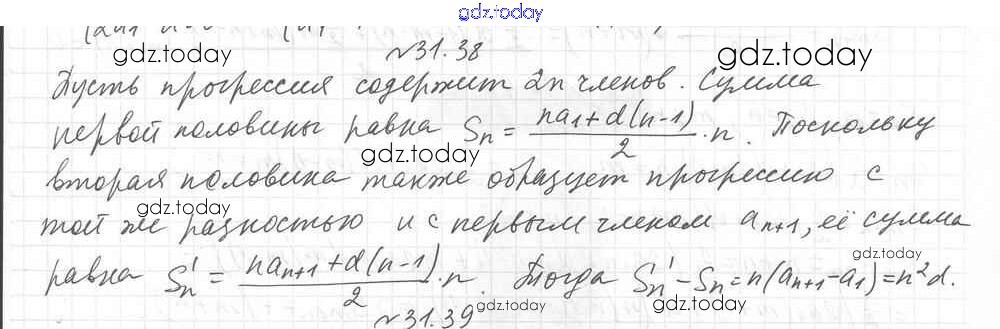 gdz.today
№31.38
gdz.today gdz.today
Пусть прогрессия содержит 2n членов. Сумма
первой половины равна Sₙ = (na₁+d(n-1))/2 · n. Поскольку
gdz.today
вторая половина также образует прогрессию с
gdz.today
той же разностью и с первым членом aₙ₊₁, её сумма
gdz.today
равна S'ₙ = (naₙ₊₁+d(n-1))/2 · n. Тогда S'ₙ-Sₙ=n(aₙ₊₁-a₁)=n²d.
gdz.today gdz.today
№31.39